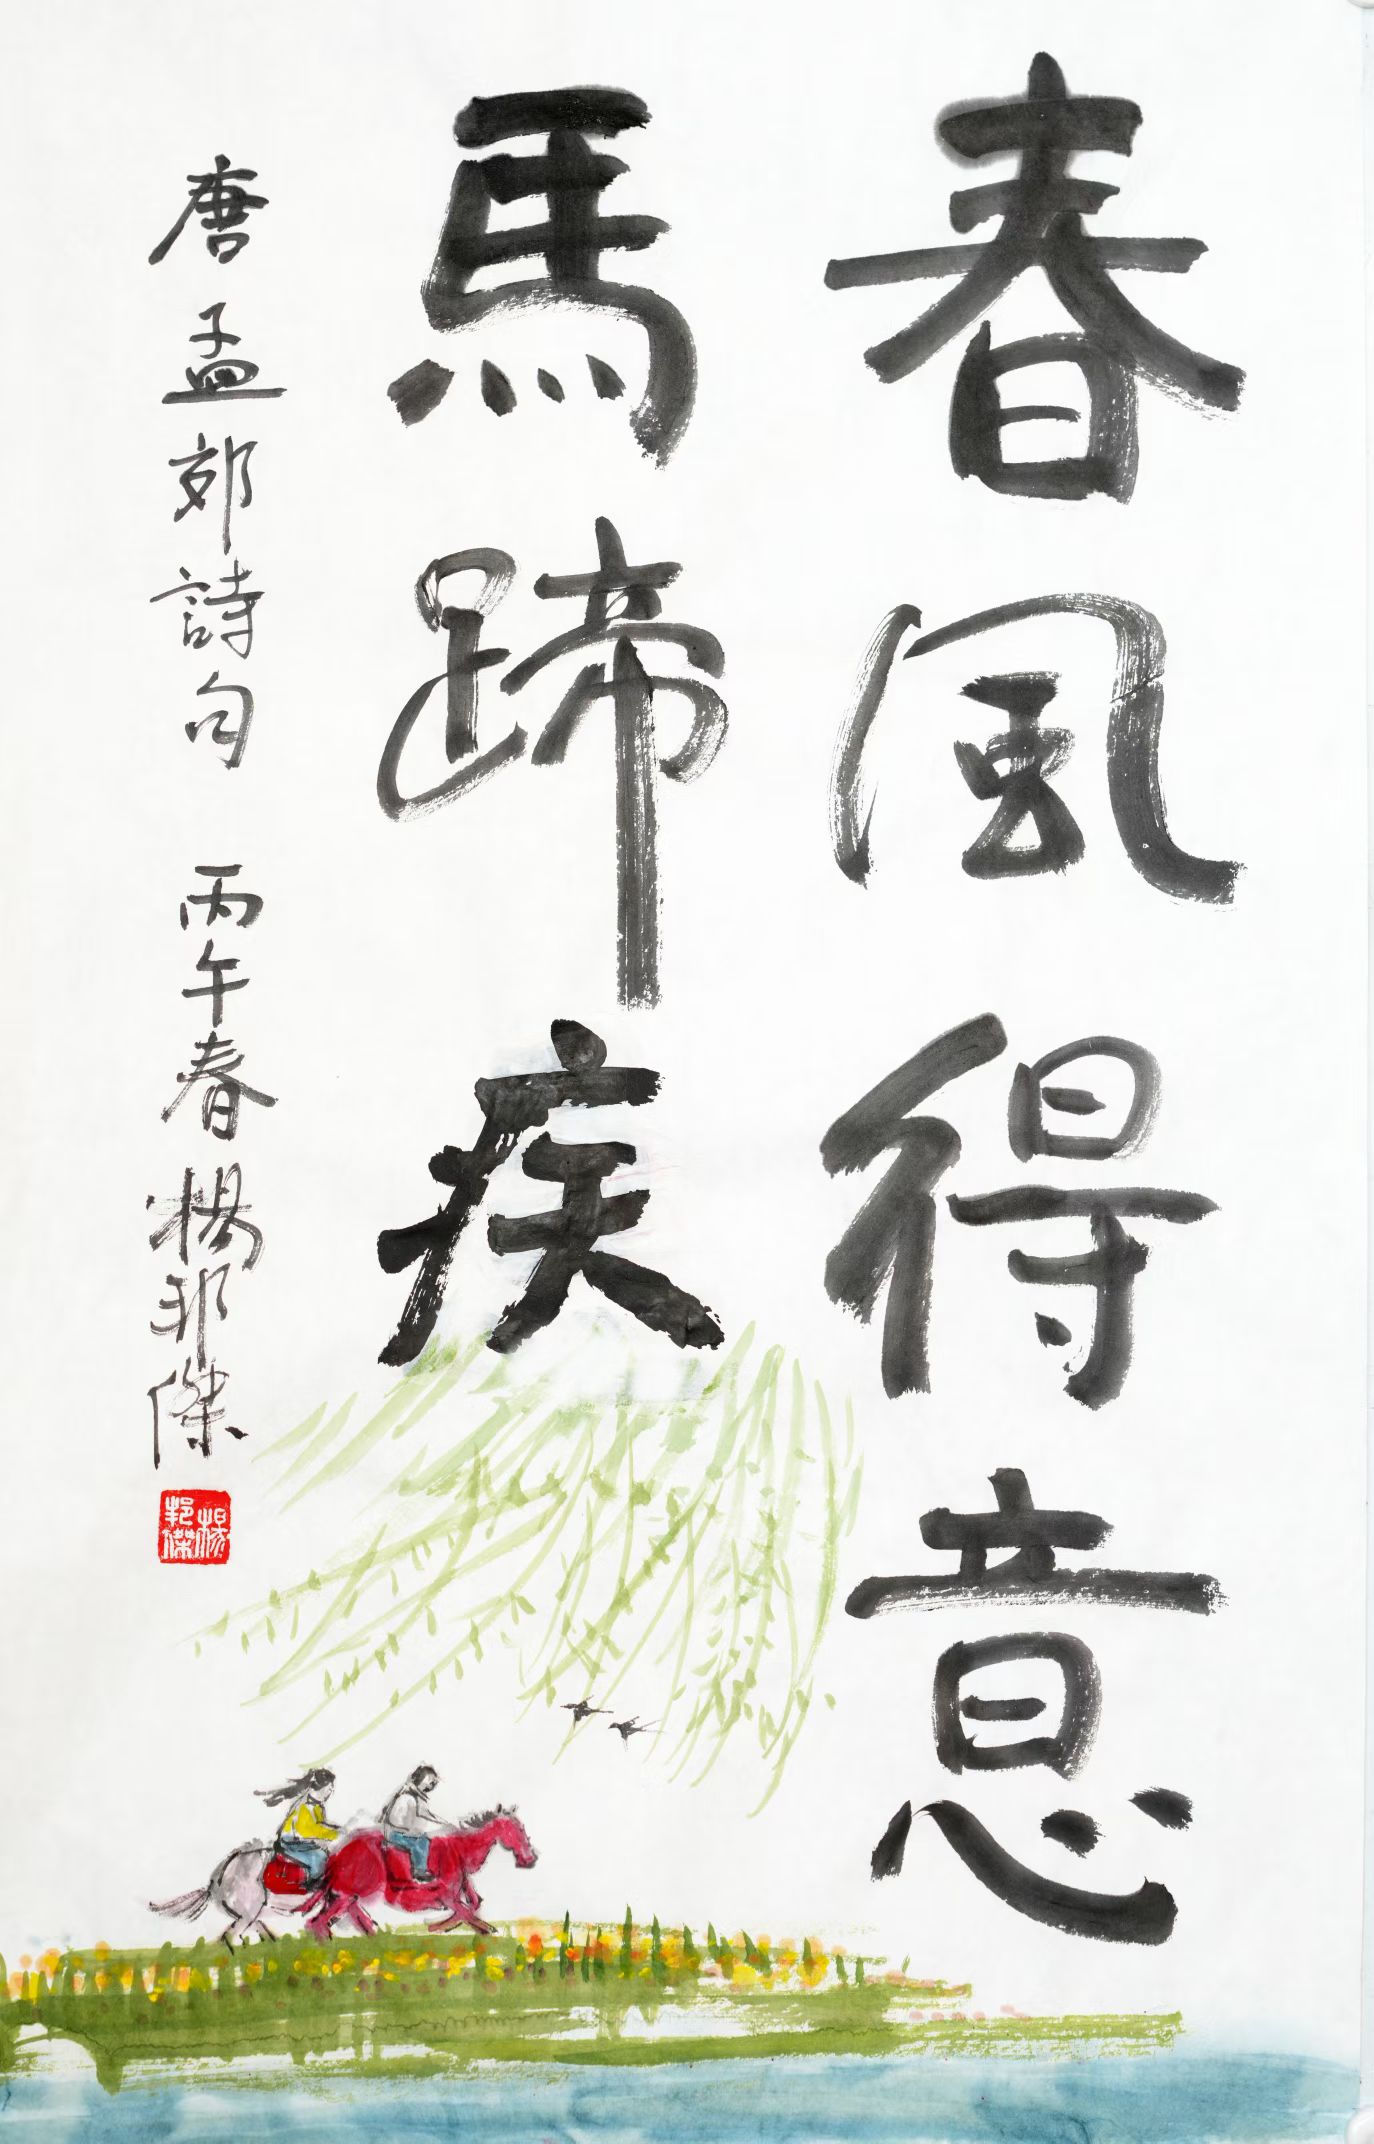 春風得意
馬蹄疾
唐孟郊詩句 丙午春楊邦傑
楊邦傑